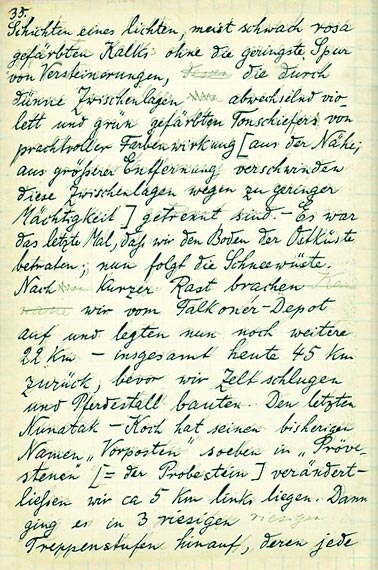 35.
Schichten eines lichten, meist schwach rosa
gefärbten Kalks ohne die geringste Spur
von Versteinerungen, die durch
dünne Zwischenlagen abwechselnd vio-
lett und grün gefärbten Tonschiefers von
prachtvoller Farbenwirkung [aus der Nähe;
aus größerer Entfernung verschwinden
diese Zwischenlagen wegen zu geringer
Mächtigkeit] getrennt sind. – Es war
das letzte Mal, daß wir den Boden der Ostküste
betraten; nun folgt die Schneewüste.
Nach kurzer Rast brachen
wir vom Falkonér-Depot
auf und legten nun noch weitere
22 km – insgesamt heute 45 km
zurück, bevor wir Zelt schlugen
und Pferdestall bauten. Den letzten
Nunatak – Koch hat seinen bisherigen
Namen „Vorposten" soeben in „Pröve-
stenen" [= der Probestein] verändert –
ließen wir ca 5 km links liegen. Dann
ging es in 3 riesigen riesigen
Treppenstufen hinauf, deren jede